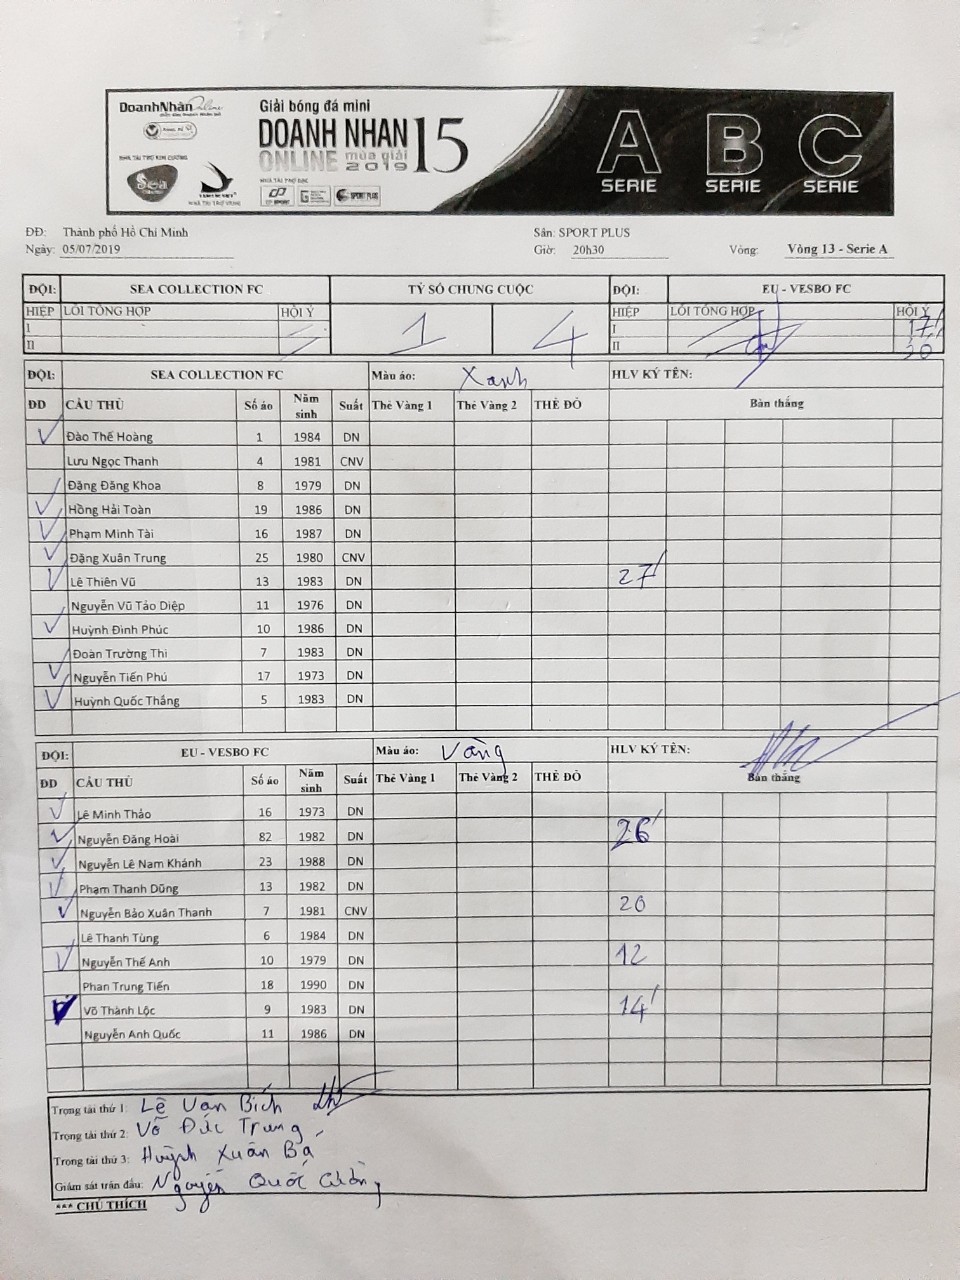 DoanhNhân Online
Giải bóng đá mini
DOANH NHAN 15
ONLINE mùa giải 2019
NHÀ TÀI TRỢ KIM CƯƠNG
Sea
NHÀ TÀI TRỢ VÀNG
NHÀ TÀI TRỢ BẠC
SPORT PLUS
A SERIE B SERIE C SERIE
ĐĐ: Thành phố Hồ Chí Minh Sân: SPORT PLUS
Ngày: 05/07/2019 Giờ: 20h30 Vòng: Vòng 13 - Serie A
ĐỘI: SEA COLLECTION FC TỶ SỐ CHUNG CUỘC ĐỘI: EU - VESBO FC
HIỆP LỖI TỔNG HỢP HỘI Ý 1 4 HIỆP LỖI TỔNG HỢP HỘI Ý
I I 17'
II II 36
ĐỘI: SEA COLLECTION FC Màu áo: Xanh HLV KÝ TÊN:
ĐD CẦU THỦ Số áo Năm sinh Suất Thẻ Vàng 1 Thẻ Vàng 2 THẺ ĐỎ Bàn thắng
Đào Thế Hoàng 1 1984 DN
Lưu Ngọc Thanh 4 1981 CNV
Đặng Đăng Khoa 8 1979 DN
Hồng Hải Toàn 19 1986 DN
Phạm Minh Tài 16 1987 DN
Đặng Xuân Trung 25 1980 CNV
Lê Thiên Vũ 13 1983 DN 27'
Nguyễn Vũ Tảo Diệp 11 1976 DN
Huỳnh Đình Phúc 10 1986 DN
Đoàn Trường Thi 7 1983 DN
Nguyễn Tiến Phú 17 1973 DN
Huỳnh Quốc Thắng 5 1983 DN
ĐỘI: EU - VESBO FC Màu áo: Vàng HLV KÝ TÊN:
ĐD CẦU THỦ Số áo Năm sinh Suất Thẻ Vàng 1 Thẻ Vàng 2 THẺ ĐỎ Bàn thắng
Lê Minh Thảo 16 1973 DN
Nguyễn Đăng Hoài 82 1982 DN 26'
Nguyễn Lê Nam Khánh 23 1988 DN
Phạm Thanh Dũng 13 1982 DN
Nguyễn Bảo Xuân Thanh 7 1981 CNV 20
Lê Thanh Tùng 6 1984 DN
Nguyễn Thế Anh 10 1979 DN 12
Phan Trung Tiến 18 1990 DN
Võ Thành Lộc 9 1983 DN 14'
Nguyễn Anh Quốc 11 1986 DN
Trọng tài thứ 1: Lê Van Bích
Trọng tài thứ 2: Võ Đức Trung
Trọng tài thứ 3: Huỳnh Xuân Bá
Giám sát trận đấu: Nguyễn Quốc Cường
*** CHÚ THÍCH